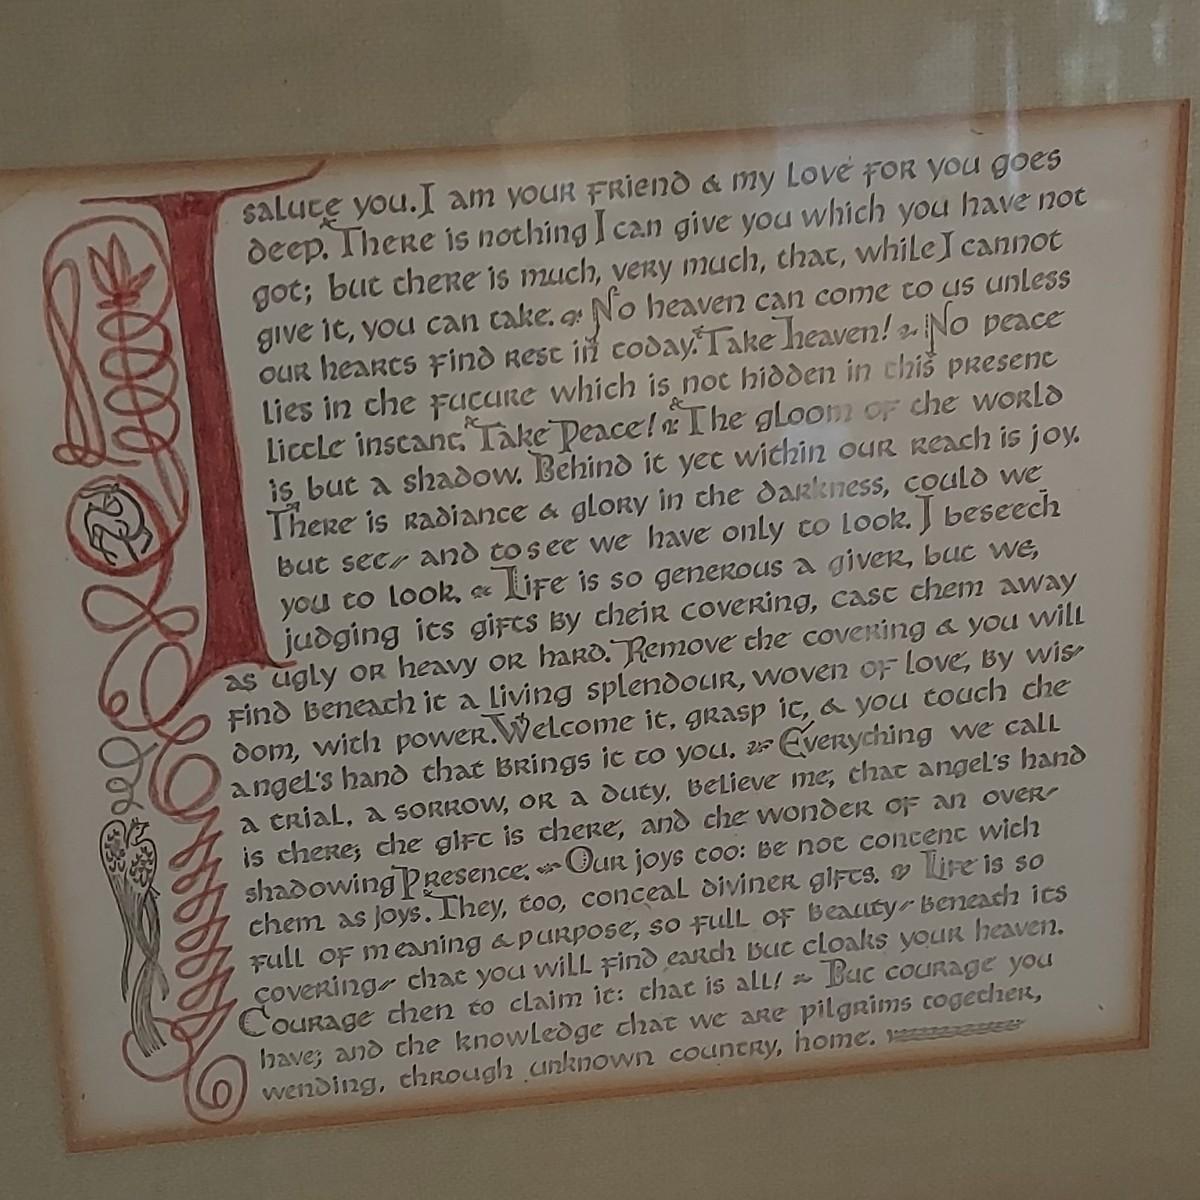 I saluce you. I am your friend & my love for you goes
deep. There is nothing I can give you which you have not
got; but there is much, very much, that, while I cannot
give it, you can take. No heaven can come to us unless
our hearts find rest in today. Take heaven! No peace
lies in the future which is not hidden in this present
little instant. Take Peace! The gloom of the world
is but a shadow. Behind it yet within our reach is joy.
There is radiance & glory in the darkness, could we
but see - and to see we have only to look. I beseech
you to look. Life is so generous a giver, but we,
judging its gifts by their covering, cast them away
as ugly or heavy or hard. Remove the covering & you will
find beneath it a living splendour, woven of love, by wis-
dom, with power. Welcome it, grasp it, & you touch the
angel's hand that brings it to you. Everything we call
a trial, a sorrow, or a duty, believe me, that angel's hand
is there; the gift is there, and the wonder of an over-
shadowing Presence. Our joys too: be not content with
them as joys. They, too, conceal diviner gifts. Life is so
full of meaning & purpose, so full of beauty - beneath its
covering - that you will find earth but cloaks your heaven.
Courage then to claim it: that is all! But courage you
have; and the knowledge that we are pilgrims together,
wending, through unknown country, home.